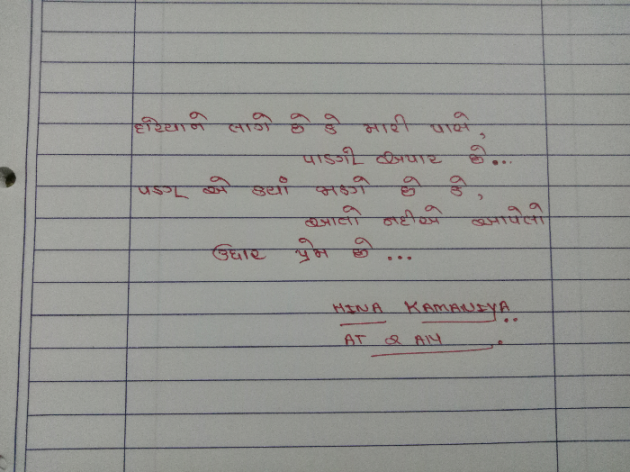 દરિયાને લાગે છે કે મારી પાસે,
પાણી અપાર છે...
પણ એ ક્યાં જાણે છે કે,
આતો નદીએ આપેલો
ઉધાર પ્રેમ છે...
HINA KAMANIYA..
AT &